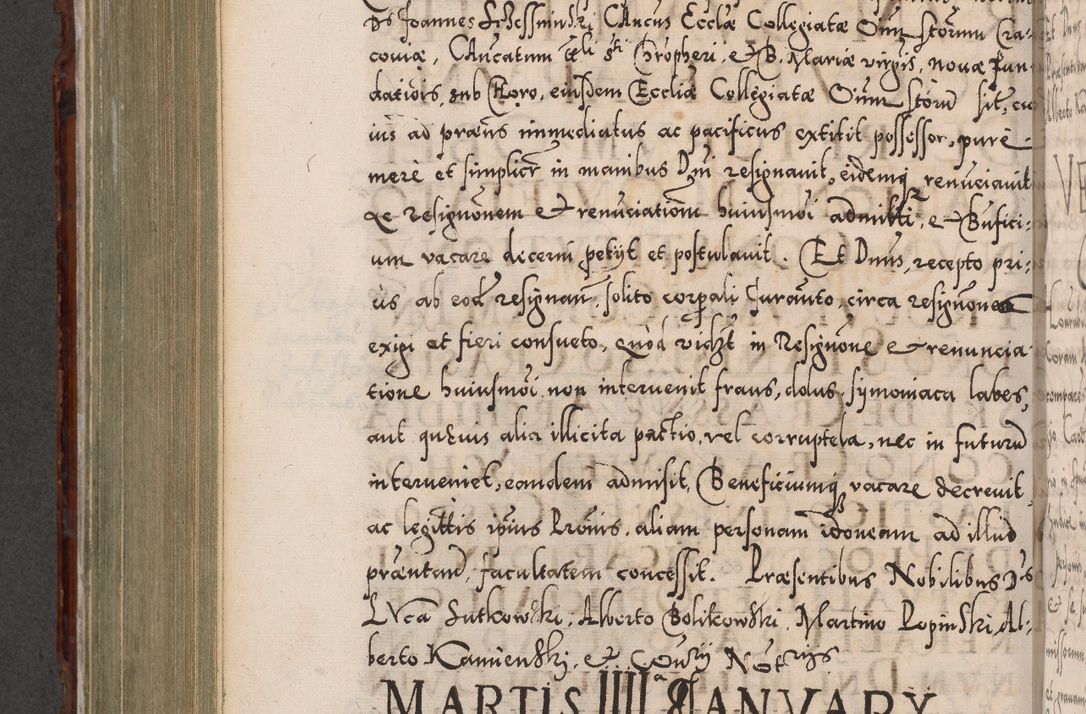 Ds Joannes CAncus Ecclæ Collegiatæ Oim Storum Cra-
coviæ, CAncatum S. Chrõpheri, et B. Mariæ virgis, novæ Fun-
datiois, sub Choro, eiusdem Eccliæ Collegiatæ Oium Storũ sit, cu
ius ad præns immediatus ac pacificus extitit possessor, purè
merè et simplicr in manibus Dni resignavit, eidemq renũciavit
ac resignõnem et renũciationẽ huiusmõi admitti, et Bnfici-
um vacare decerni petijt et postulavit. Et Dnus, recepto pri-
ùs ab eod resignañ. solito corpali Jurañto, circa resignõnes
exigi et fieri consueto, quòd vidzt in Resignõne et renuncia-
tione huiusmõi non intervenit fraus, dolus, symoniaca labes,
aut quævis alia illicita pactio, vel corruptela, nec in futurũ
interveniet, eandem admisit, Beneficiumq vacare decrevit,
ac legittis ipius Pronis, aliam personam idoneam ad illud
præntand, facultatem concessit. Præsentibus Nobilibus Ds
LVca Sutkowski, Alberto Bolikowski, Martino Popinski, Al-
berto Kamienski, et Notrijs
MARTIS IIII JANVARY